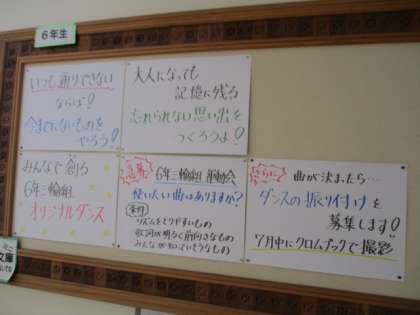 6年生
いつも通りできない
ならば!
今までにないものを
やろう!
大人になっても
記憶に残る
忘れられない思い出を
つくろうよ!
みんなで創る
6年三輪組
オリジナルダンス
急募
6年三輪組 運動会
使いたい曲はありますか?
条件
リズムをとりやすいもの
歌詞が明るく前向きなもの
みんなが知っていそうなもの
さらに
曲が決まったら…
ダンスの振り付けを
募集します!
7月中にクロムブックで撮影
文庫